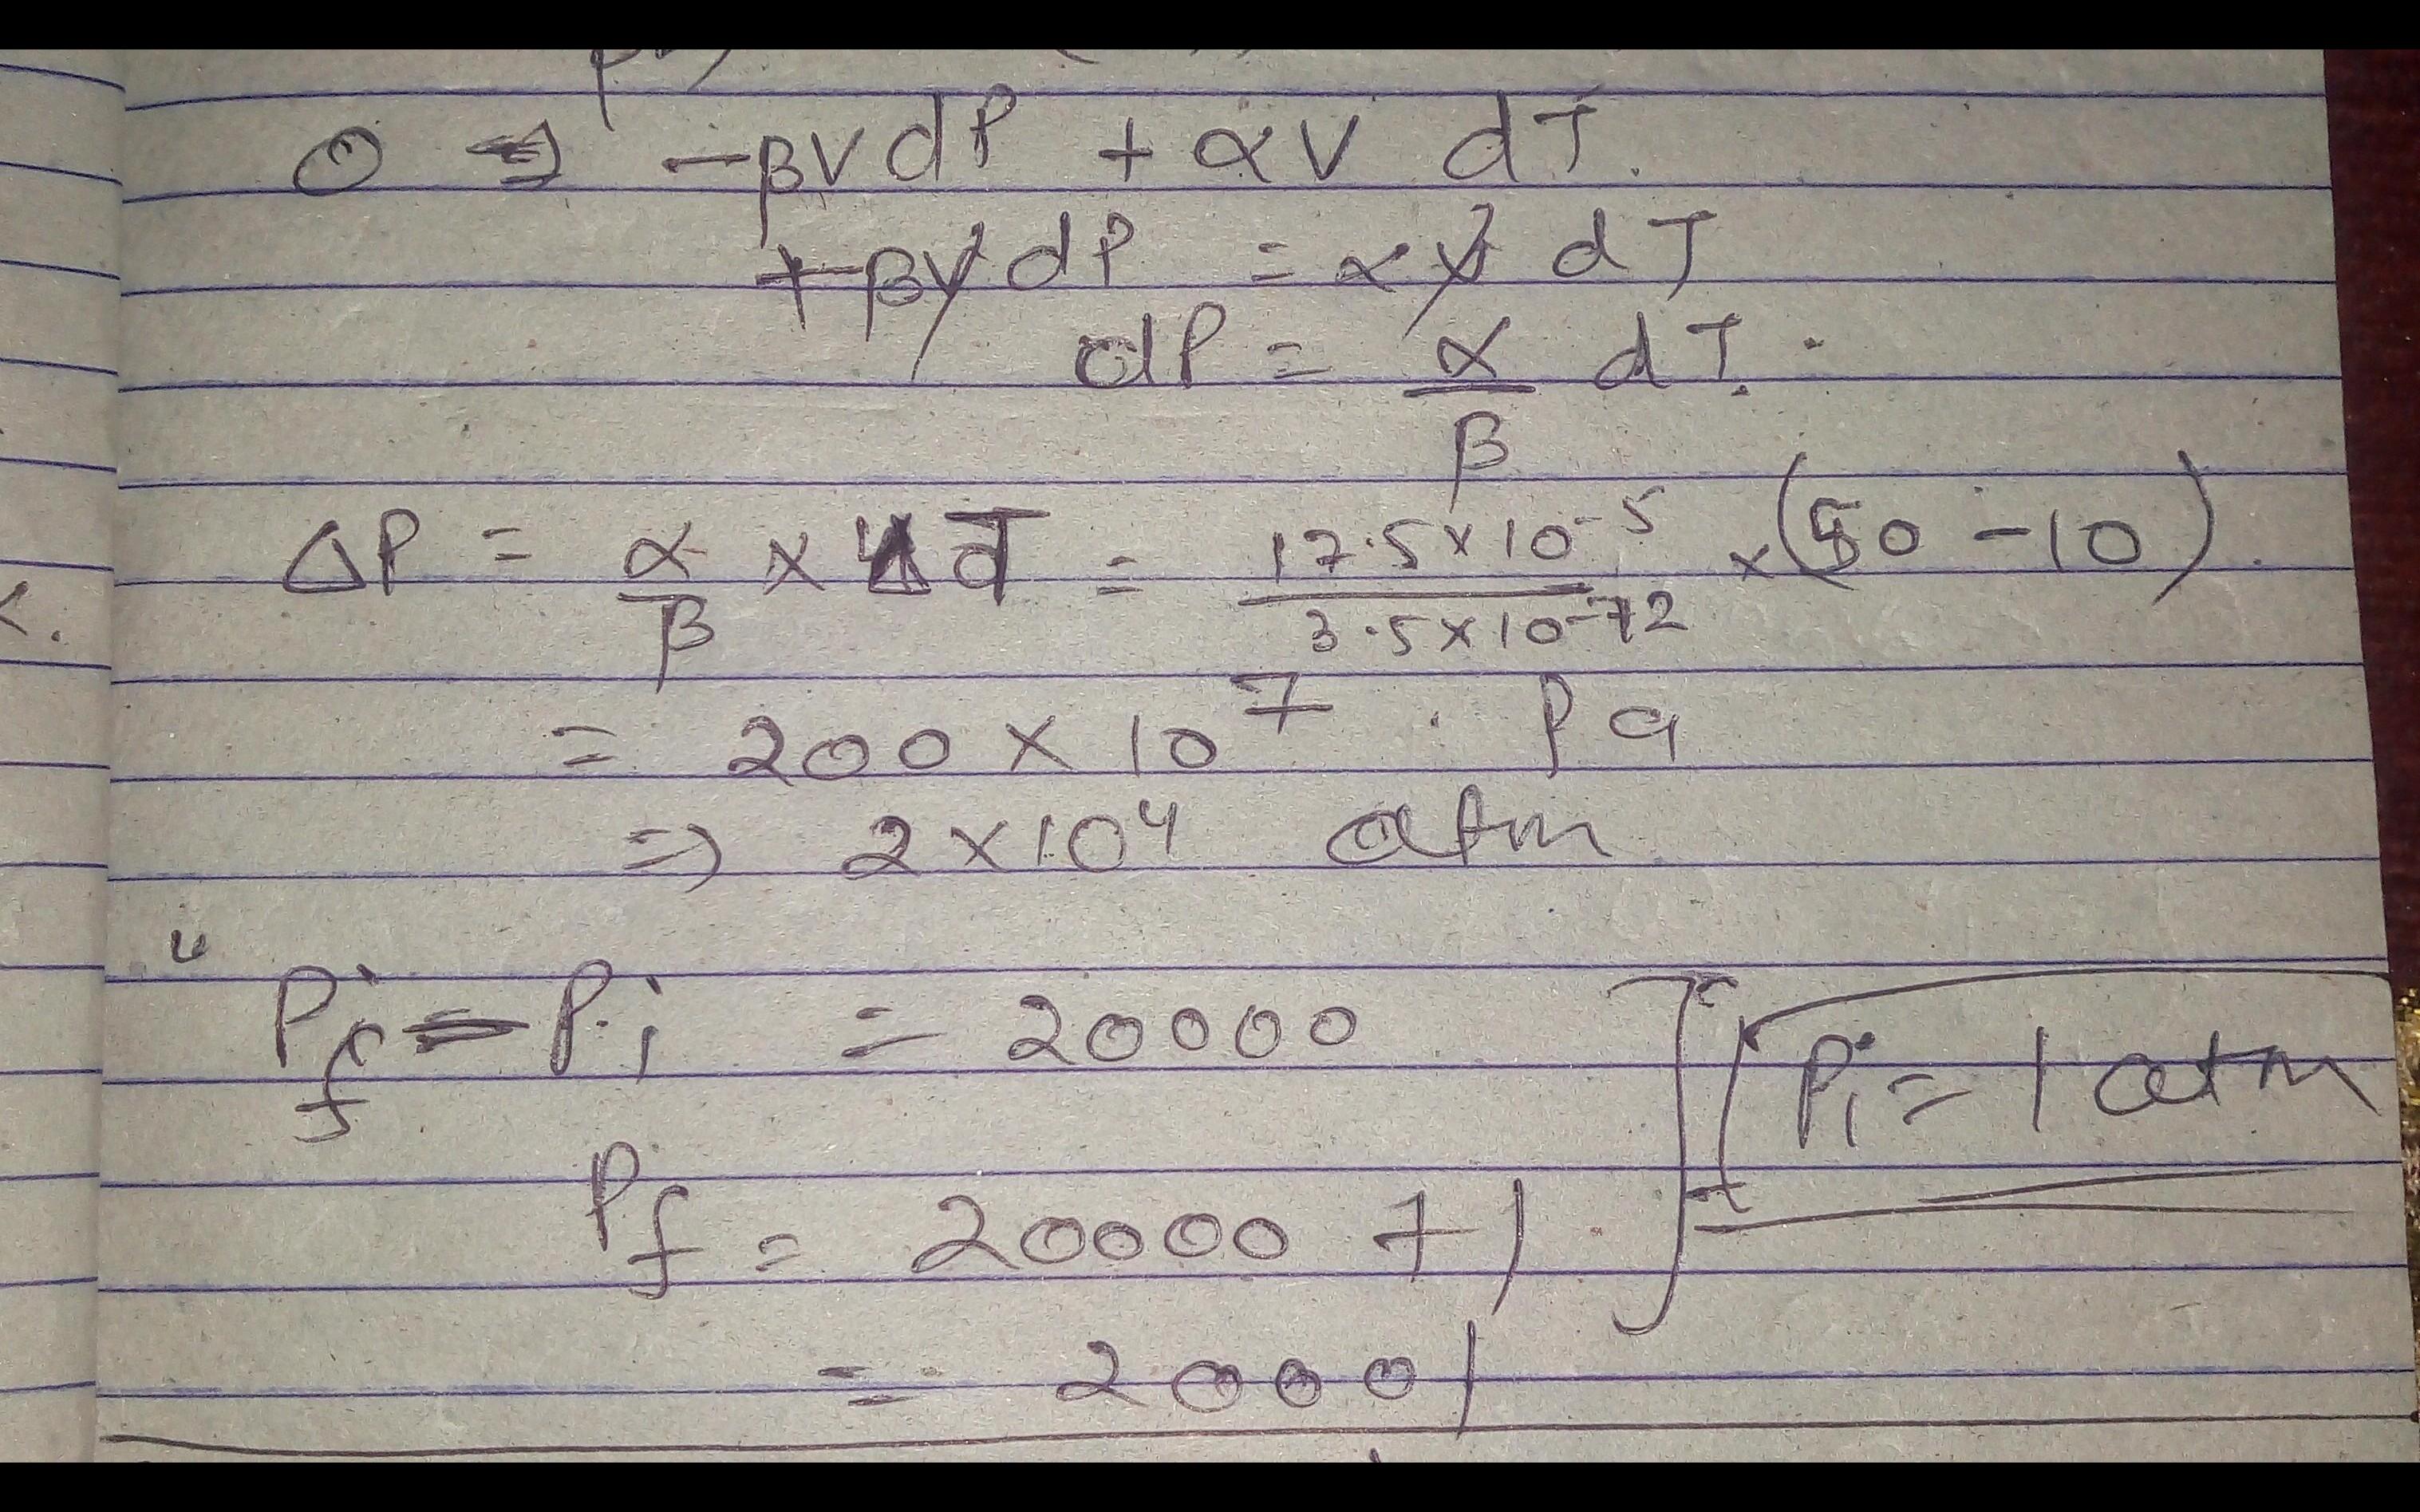 0 => -βV dP + αV dT.
+βV dP = αV dT
dP = α/β dT.
ΔP = α/β × ΔT = 17.5×10^-5 / 3.5×10^-12 × (50 - 10).
= 200 × 10^7 Pa
=> 2×10^4 atm
Pf - Pi = 20000
Pi = 1 atm
Pf = 20000 + 1
= 20001